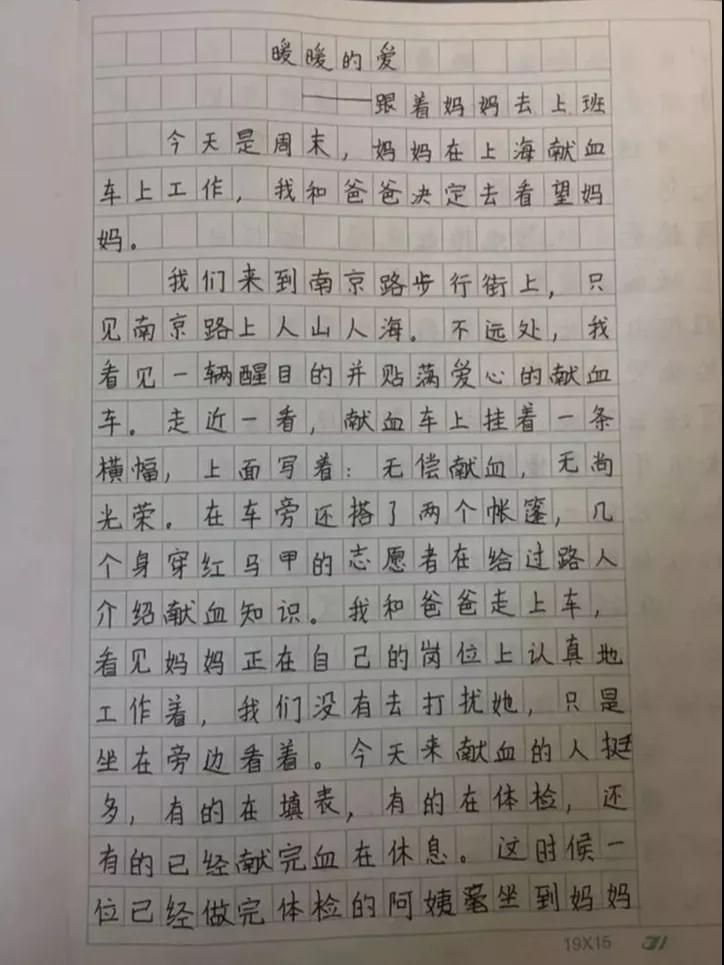 暖暖的爱
——跟着妈妈去上班
今天是周末，妈妈在上海献血
车上工作，我和爸爸决定去看望妈
妈。
我们来到南京路步行街上，只
见南京路上人山人海。不远处，我
看见一辆醒目的并贴满爱心的献血
车。走近一看，献血车上挂着一条
横幅，上面写着：无偿献血，无尚
光荣。在车旁还搭了两个帐篷，几
个身穿红马甲的志愿者在给过路人
介绍献血知识。我和爸爸走上车，
看见妈妈正在自己的岗位上认真地
工作着，我们没有去打扰她，只是
坐在旁边看着。今天来献血的人挺
多，有的在填表，有的在体检，还
有的已经献完血在休息。这时候一
位已经做完体检的阿姨坐到妈妈
19X15